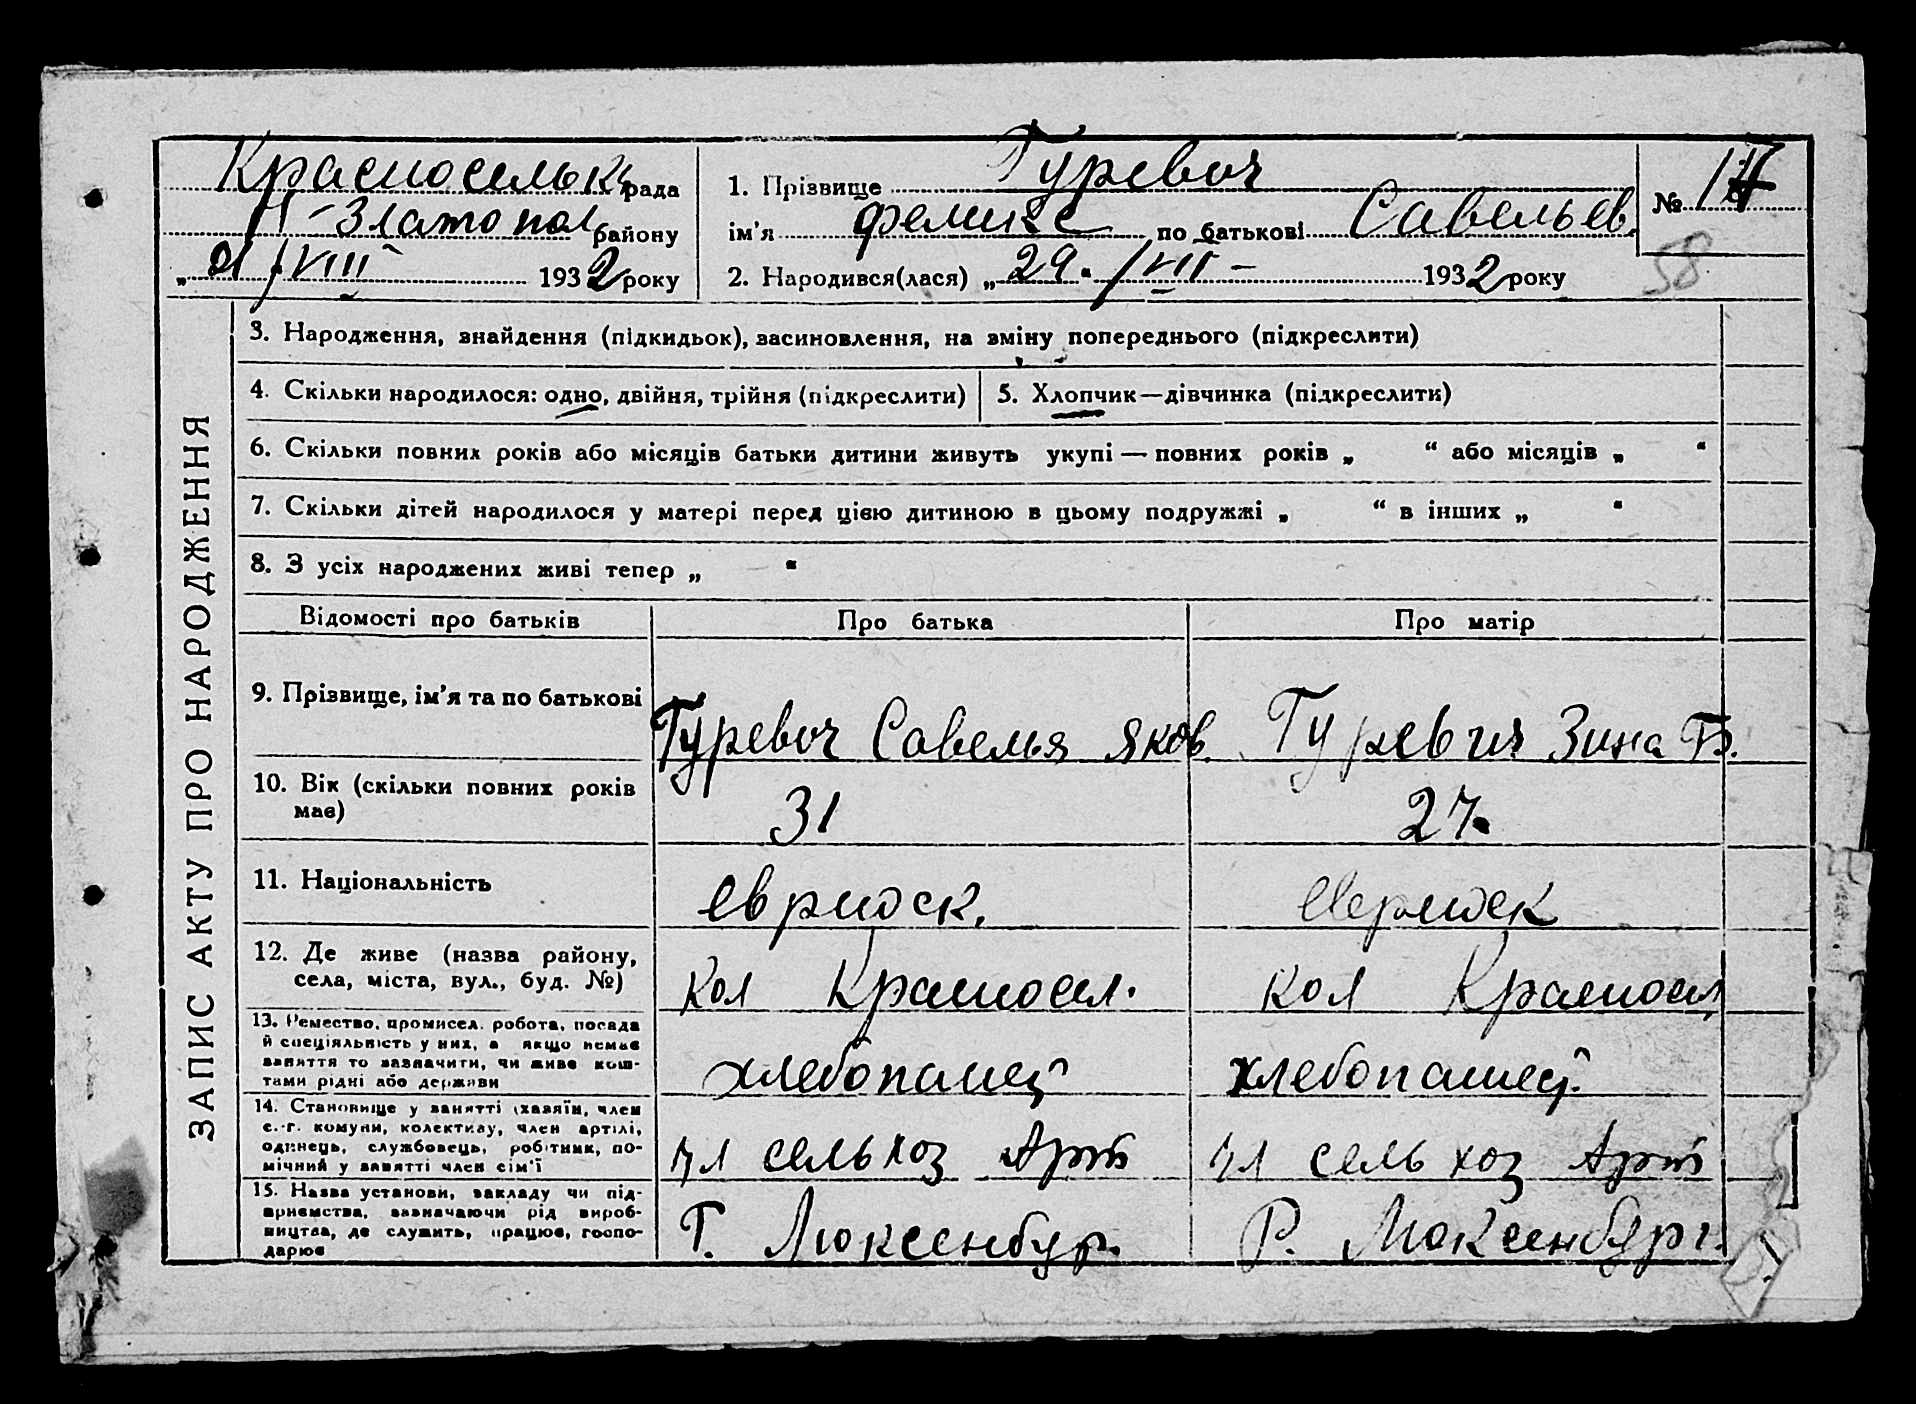 Красносельк рада
Н-Златопол району
„21/VIII 1932 року
1. Прізвище Гуревич
ім'я Феликс по батькові Савельев.
2. Народився(лася) „29" /VII – 1932 року
№ 17
58
ЗАПИС АКТУ ПРО НАРОДЖЕННЯ
3. Народження, знайдення (підкидьок), засиновлення, на зміну попереднього (підкреслити)
4. Скільки народилося: одно, двійня, трійня (підкреслити)
5. Хлопчик—дівчинка (підкреслити)
6. Скільки повних років або місяців батьки дитини живуть укупі — повних років „ “ або місяців „ “
7. Скільки дітей народилося у матері перед цією дитиною в цьому подружжі „ “ в інших „ “
8. З усіх народжених живі тепер „ “
Відомості про батьків Про батька Про матір
9. Прізвище, ім'я та по батькові
Гуревич Савелья Яков. Гуревич Зина Б.
10. Вік (скільки повних років
має)
31 27.
11. Національність
еврейск. еврейск
12. Де живе (назва району,
села, міста, вул., буд. №)
Кол Красносел. Кол Красносел
13. Ремество, промисел, робота, посада
й спеціяльність у них, а якщо немає
заняття то зазначити, чи живе кош-
тами рідні або держави
хлебопашец хлебопашец.
14. Становище у занятті (хазяїн, член
с.-г. комуни, колективу, член артілі,
одинець, службовець, робітник, по-
мічний у занятті член сім'ї
чл сельхоз Арт чл сельхоз Арт
15. Назва установи, закладу чи під-
приємства, зазначаючи рід вироб-
ництва, де служить, працює, госпо-
дарює
Р. Люксенбург. Р. Люксенбург.